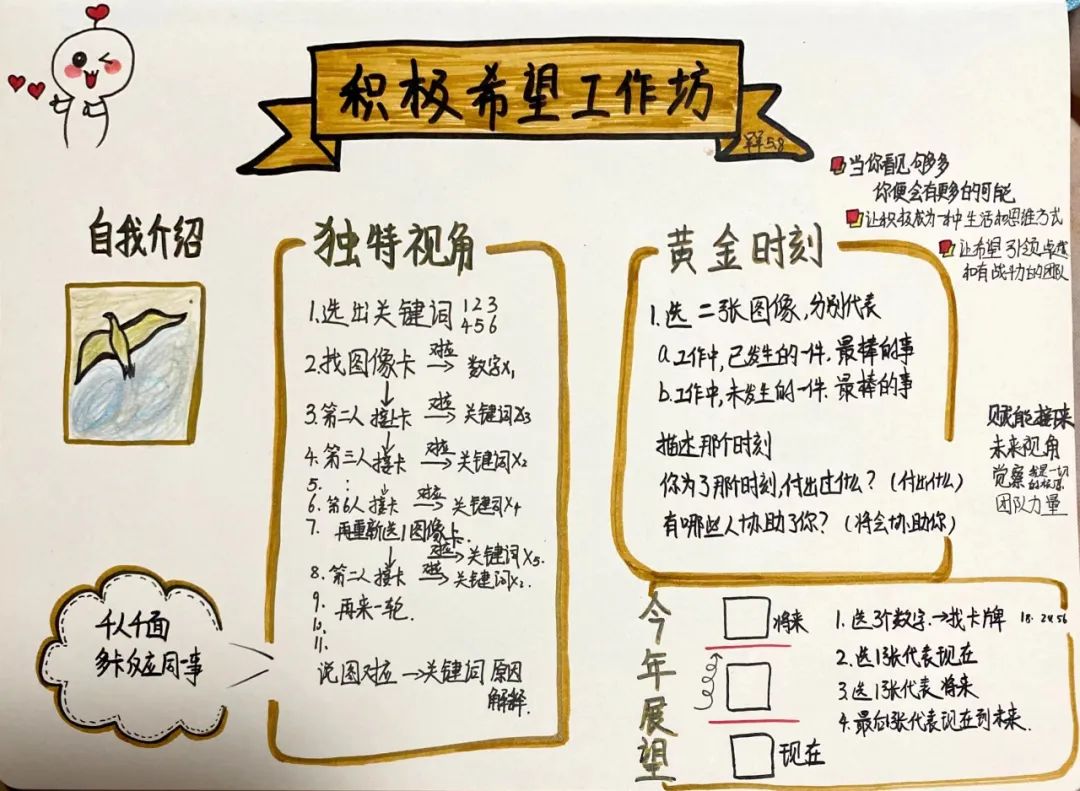 积极希望工作坊
羊羊5.8
当你看见够多
你便会有更多的可能
让积极成为一种生活和思维方式
让希望引领卓越
和有战斗力的团队
自我介绍
独特视角
1.选出关键词 1 2 3
4 5 6
2.找图像卡 对应→ 数字X1
3.第二人 接卡 对应→ 关键词X3
4.第三人接卡 对应→ 关键词X2
5. ⋮
6.第6人接卡 对应→ 关键词X4
7. 再重新选1图像卡
对应→关键词X5.
8.第二人接卡 对应→关键词X2.
9. 再来一轮.
10.
11.
说图对应→关键词 原因
解释.
千人千面
多卡反应同一事
黄金时刻
1.选二张图像,分别代表
a.工作中,已发生的一件.最棒的事
b.工作中,未发生的一件.最棒的事
描述那个时刻
你为了那个时刻,付出过什么?(付出什么)
有哪些人协助了你?(将会协助你)
赋能接来
未来视角
觉察
团队力量
今年展望
将来
现在
1.选3个数字→找卡牌 18. 24 56
2.选1张代表现在
3.选1张代表将来
4.最后1张代表现在到未来.